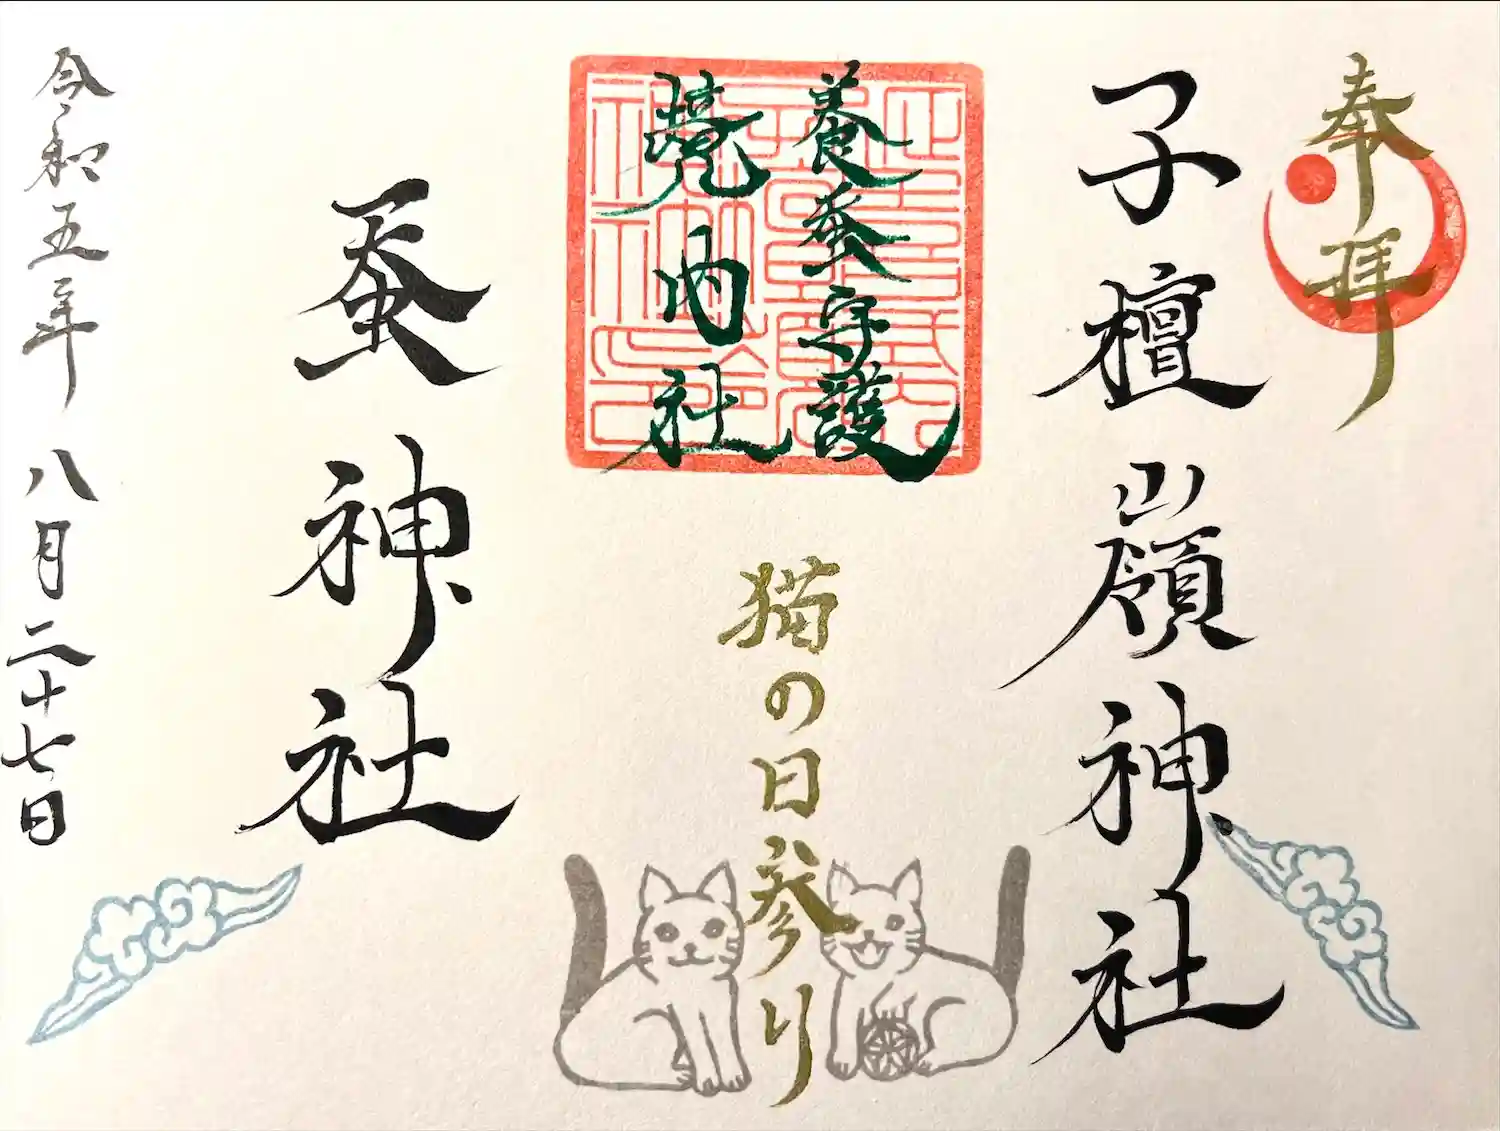 奉拝
子檀嶺神社
養蚕守護
境内社
猫の日参り
蚕神社
令和五年 八月二十七日